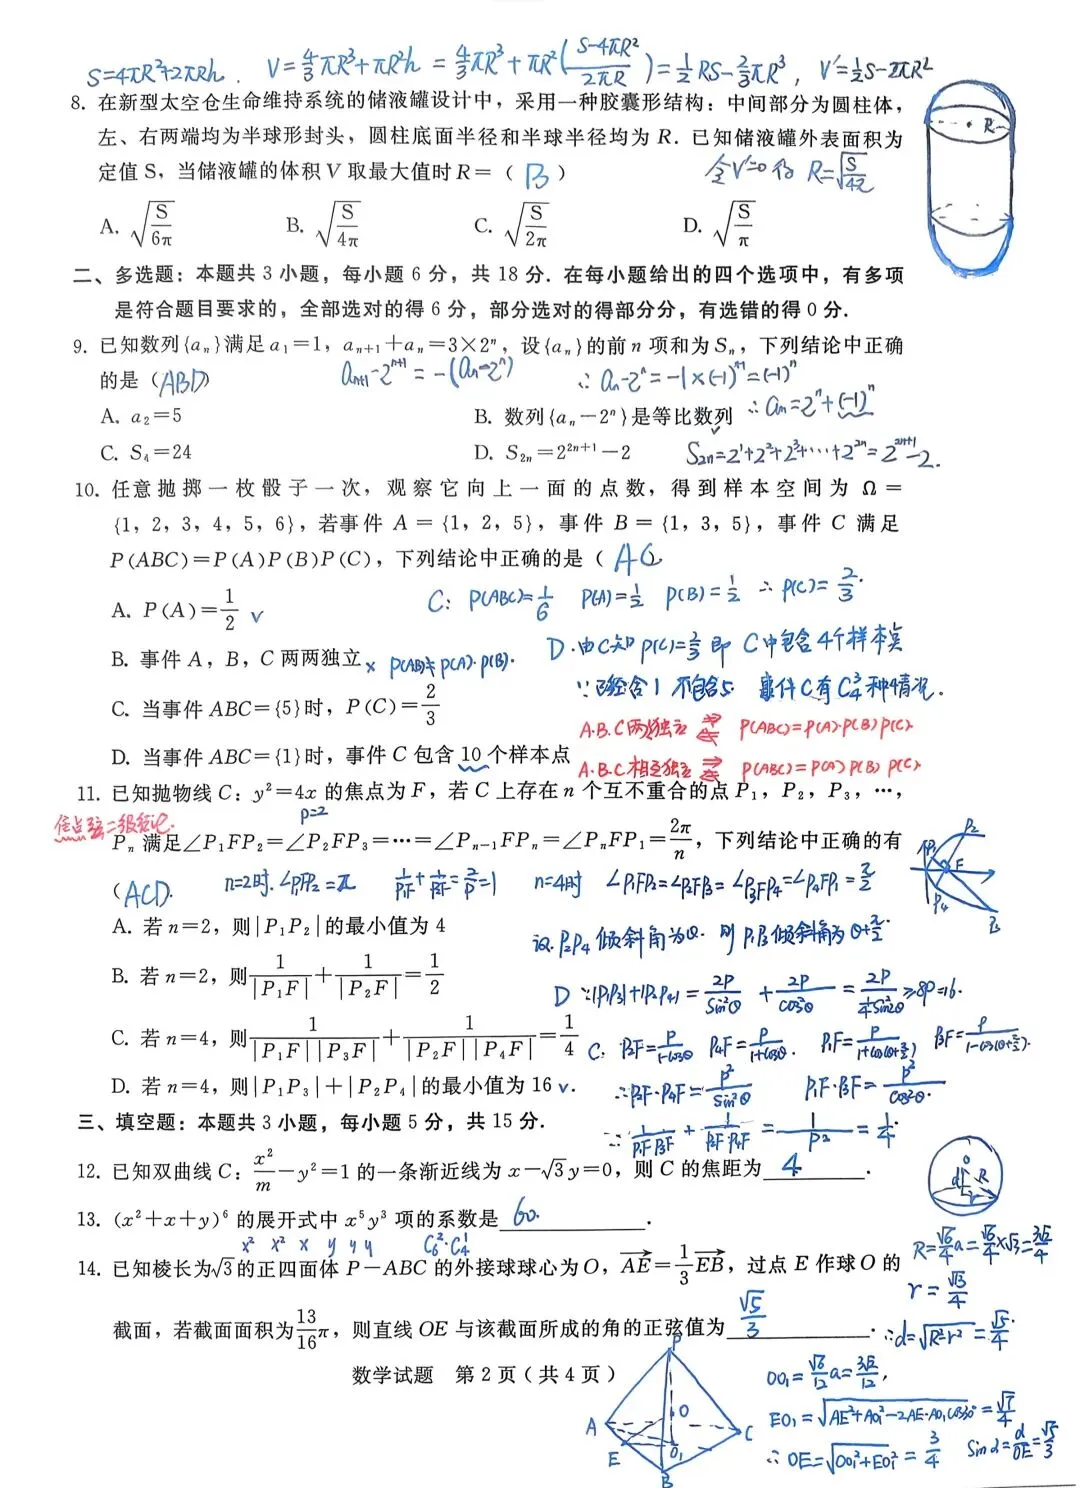 S=4πR²+2πRh. V=4/3πR³+πR²h = 4/3πR³+πR²(S-4πR²/2πR)=1/2RS-2/3πR³, V'=1/2S-2πR²
8. 在新型太空仓生命维持系统的储液罐设计中，采用一种胶囊形结构：中间部分为圆柱体，
左、右两端均为半球形封头，圆柱底面半径和半球半径均为 R. 已知储液罐外表面积为
定值 S，当储液罐的体积 V 取最大值时 R=（ B ）
令V'=0得 R=√(S/4π)
R
A. √(S/6π) B. √(S/4π) C. √(S/2π) D. √(S/π)
二、多选题：本题共 3 小题，每小题 6 分，共 18 分. 在每小题给出的四个选项中，有多项
是符合题目要求的，全部选对的得 6 分，部分选对的得部分分，有选错的得 0 分.
9. 已知数列{aₙ}满足 a₁=1，aₙ₊₁+aₙ=3×2ⁿ，设{aₙ}的前 n 项和为 Sₙ，下列结论中正确
的是（ABD） aₙ₊₁-2ⁿ⁺¹=-(aₙ-2ⁿ) ∴aₙ-2ⁿ=-1×(-1)ⁿ⁻¹=(-1)ⁿ
A. a₂=5 B. 数列{aₙ-2ⁿ}是等比数列 ∴aₙ=2ⁿ+(-1)ⁿ
C. S₄=24 D. S₂ₙ=2²ⁿ⁺¹-2 S₂ₙ=2¹+2²+2³+…+2²ⁿ=2²ⁿ⁺¹-2.
10. 任意抛掷一枚骰子一次，观察它向上一面的点数，得到样本空间为 Ω=
{1，2，3，4，5，6}，若事件 A={1，2，5}，事件 B={1，3，5}，事件 C 满足
P(ABC)=P(A)P(B)P(C)，下列结论中正确的是（ AC ）
C: P(ABC)=1/6 P(A)=1/2 P(B)=1/2 ∴P(C)=2/3.
A. P(A)=1/2 ∨
B. 事件 A，B，C 两两独立 × P(AB)≠P(A)·P(B).
D.由C知 P(C)=2/3 即 C中包含4个样本点
C. 当事件 ABC={5}时，P(C)=2/3
含1 不包含5. 事件C有C₄³种4情况.
A.B.C两两独立 P(ABC)=P(A)·P(B)P(C).
D. 当事件 ABC={1}时，事件 C 包含 10 个样本点
A.B.C相互独立 P(ABC)=P(A)P(B)P(C).
11. 已知抛物线 C：y²=4x 的焦点为 F，若 C 上存在 n 个互不重合的点 P₁，P₂，P₃，…，
p=2
焦点弦二级结论.
Pₙ 满足∠P₁FP₂=∠P₂FP₃=…=∠Pₙ₋₁FPₙ=∠PₙFP₁=2π/n，下列结论中正确的有
（ACD. n=2时.∠P₁FP₂=π 1/P₁F+1/P₂F=2/p=1 n=4时 ∠P₁FP₂=∠P₂FP₃=∠P₃FP₄=∠P₄FP₁=π/2
P₁ P₂ F P₄ P₃
A. 若 n=2，则|P₁P₂|的最小值为 4
设.P₂P₄倾斜角为θ. 则P₁P₃倾斜角为θ+π/2.
B. 若 n=2，则1/|P₁F|+1/|P₂F|=1/2
D ∵|P₁P₃|+|P₂P₄|=2p/sin²θ+2p/cos²θ=2p/(1/4sin²2θ)≥8p=16.
C. 若 n=4，则1/(|P₁F||P₃F|)+1/(|P₂F||P₄F|)=1/4
C: P₂F=p/(1-cosθ) P₄F=p/(1+cosθ). P₁F=p/(1+cos(θ+π/2)) P₃F=p/(1-cos(θ+π/2)).
D. 若 n=4，则|P₁P₃|+|P₂P₄|的最小值为 16 ∨.
∴P₂F·P₄F=p²/sin²θ P₁F·P₃F=p²/cos²θ.
三、填空题：本题共 3 小题，每小题 5 分，共 15 分.
∴1/(P₁F P₃F)+1/(P₂F·P₄F)=1/p²=1/4.
12. 已知双曲线 C：x²/m-y²=1 的一条渐近线为 x-√3y=0，则 C 的焦距为 4 .
O d R r
13. (x²+x+y)⁶ 的展开式中 x⁵y³ 项的系数是 60. .
x² x² x y y y C₆²·C₄¹
R=√6/4a=√6/4×√3=3√2/4
14. 已知棱长为√3的正四面体 P-ABC 的外接球球心为 O，AE→=1/3EB→，过点 E 作球 O 的
r=√13/4
截面，若截面面积为13/16π，则直线 OE 与该截面所成的角的正弦值为 √5/3 .
∴d=√(R²-r²)=√5/4.
数学试题 第 2 页（共 4 页）
P A B C E O O₁
OO₁=√6/12a=3√2/12,
EO₁=√(AE²+AO₁²-2AE·AO₁cos30°)=√7/4
∴OE=√(OO₁²+EO₁²)=3/4 sinα=d/OE=√5/3